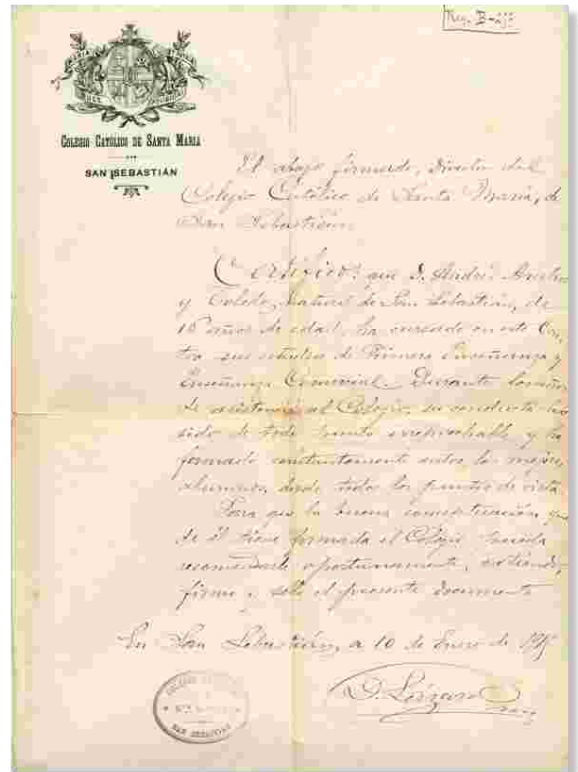 COLEGIO CATÓLICO DE SANTA MARIA
SAN SEBASTIÁN
El abajo firmado, Director del
Colegio Católico de Santa María, de
San Sebastián
Certifico: que D. Andrés
y Toledo, natural de San Sebastián, de
16 años de edad, ha cursado en este Cen-
tro sus estudios de Primera Enseñanza y
Enseñanza Comercial. Durante
de asistencia al Colegio, su conducta ha
sido de todo punto irreprochable, y ha
formado constantemente entre los mejores
alumnos, desde todos los puntos de vista.
Para que la buena conceptuación que
de él tiene formada el Colegio, pueda
recomendarle oportunamente, extiendo,
firmo y sello el presente documento
En San Sebastián, a 10 de Enero de
SAN SEBASTIAN